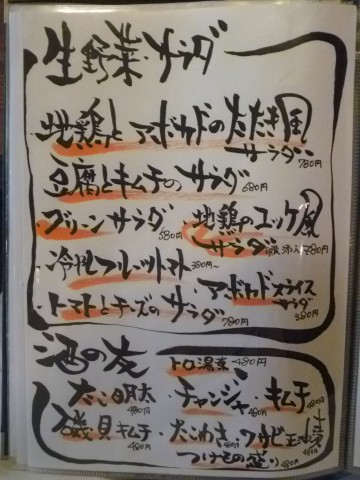 生野菜・サラダ
・地鶏とアボカドのたたき風
サラダ 780円
・豆腐とキムチのサラダ 680円
・グリーンサラダ 580円
・地鶏のユッケ風
サラダ 780円
・冷やしフルーツトマト 380円〜
アボカドスライス
サラダ 580円
・トマトとチーズのサラダ 780円
酒の友
トロ湯葉 480円
・たこ明太 480円
・チャンジャ 480円
・キムチ 480円
・磯貝キムチ 480円
・たこわさ 480円
・ワサビ 480円
つけもの盛り 480円